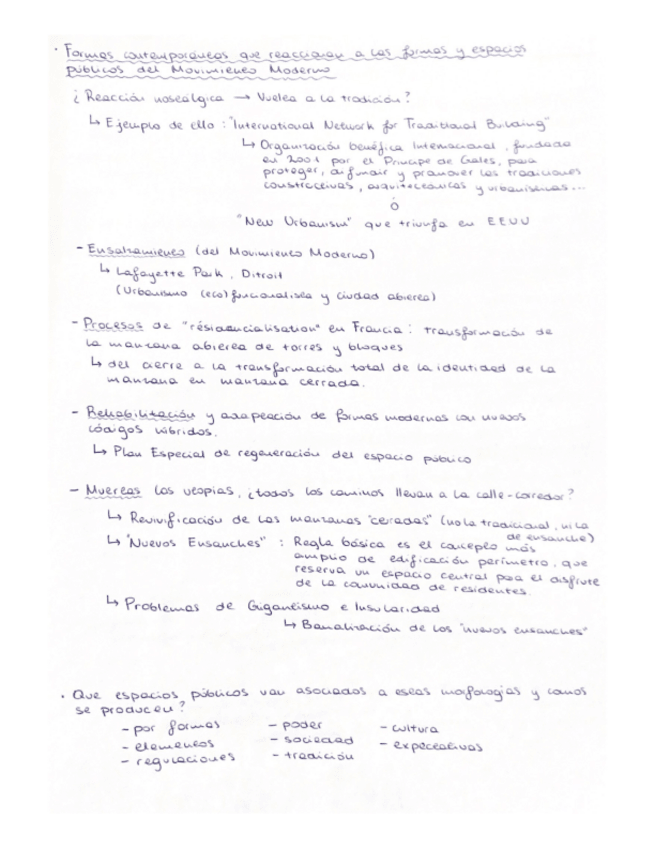 · Formas contemporáneas que reaccionan a las formas y espacios
públicos del Movimiento Moderno
¿Reacción nostálgica → Vuelta a la tradición?
↳ Ejemplo de ello: "International Network for Traditional Building"
↳ Organización benéfica Internacional, fundada
en 2001 por el Principe de Gales, para
proteger, difundir y promover las tradiciones
constructivas, arquitectónicas y urbanísticas...
ó
"New Urbanism" que triunfa en EEUU
- Ensalzamiento (del Movimiento Moderno)
↳ Lafayette Park, Ditroit
(Urbanismo (eco)funcionalista y ciudad abierta)
- Procesos de "résidencialisation" en Francia: transformación de
la manzana abierta de torres y bloques
↳ del cierre a la transformación total de la identidad de la
manzana en manzana cerrada.
- Rehabilitación y adaptación de formas modernas con nuevos
códigos híbridos.
↳ Plan Especial de regeneración del espacio público
- Muertas las utopias, ¿todos los caminos llevan a la calle-corredor?
↳ Revivificación de las manzanas "cerradas" (no la tradicional, ni la
de ensanche)
↳ "Nuevos Ensanches" : Regla básica es el concepto más
amplio de edificación perímetro, que
reserva un espacio central para el disfrute
de la comunidad de residentes.
↳ Problemas de Gigantismo e Insularidad
↳ Banalización de los "nuevos ensanches"
· Que espacios públicos van asociados a estas morfologías y como
se producen?
- por formas - poder - cultura
- elementos - sociedad - expectativas
- regulaciones - tradición